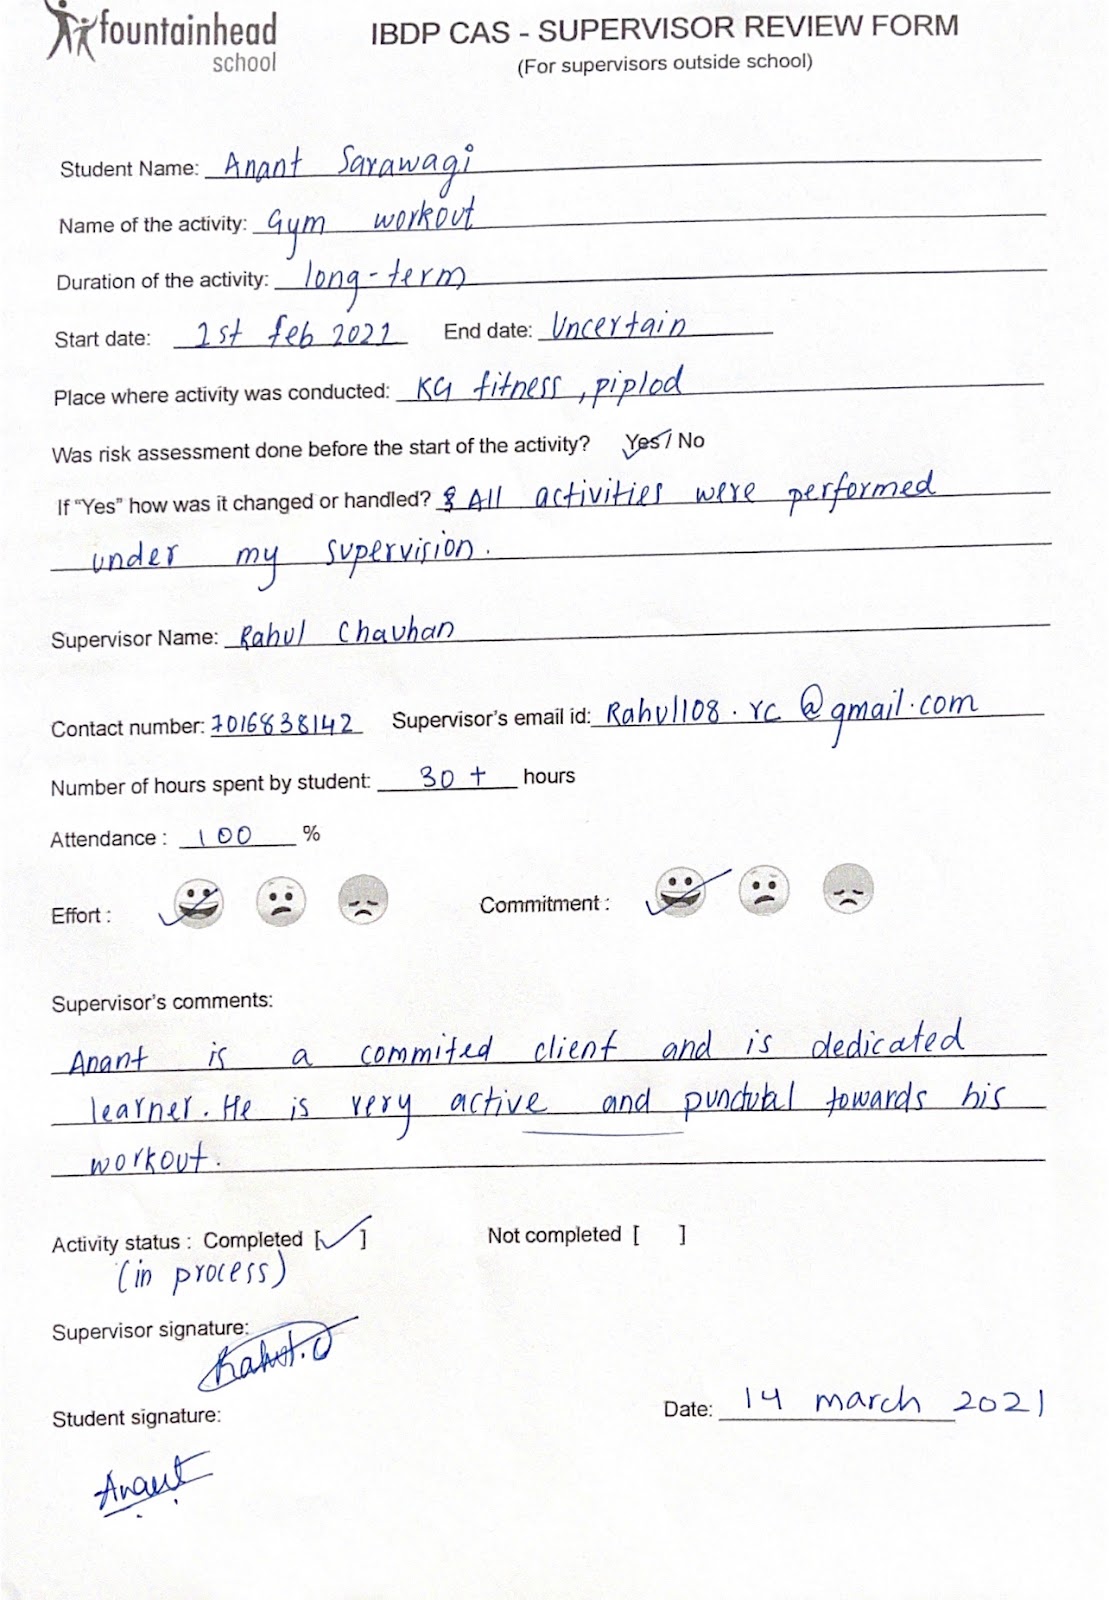 fountainhead
school
IBDP CAS - SUPERVISOR REVIEW FORM
(For supervisors outside school)
Student Name: Anant Sarawagi
Name of the activity: Gym workout
Duration of the activity: long-term
Start date: 1st feb 2021 End date: Uncertain
Place where activity was conducted: KG fitness, piplod
Was risk assessment done before the start of the activity? Yes / No
If “Yes” how was it changed or handled? All activities were performed
under my supervision.
Supervisor Name: Rahul Chauhan
Contact number: 7016838142 Supervisor's email id: Rahul108.rc@gmail.com
Number of hours spent by student: 30 + hours
Attendance : 100 %
Effort : Commitment :
Supervisor's comments:
Anant is a commited client and is dedicated
learner. He is very active and punctual towards his
workout.
Activity status : Completed [✓] Not completed [ ]
(in process)
Supervisor signature:
Rahul.C
Student signature:
Date: 14 march 2021
Anant